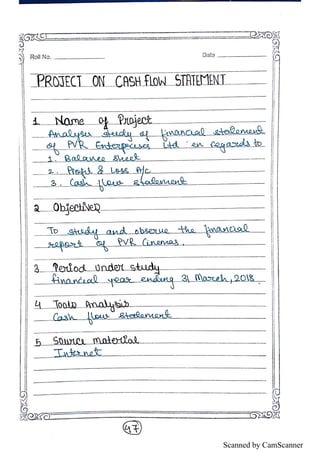 Roll No.
Date
PROJECT ON CASH FLOW STATEMENT
1 Name of Project
Analysis study of financial statement
of PVR Enterprises Ltd in regards to
1. Balance Sheet
2. Profit & Loss A/c
3. Cash flow statement
2 Objectives
To study and observe the financial
report of PVR Cinemas.
3. Period under study
financial year ending 31 March, 2018
4 Tools Analysis
Cash flow statement
5 Source material
Internet
47
Scanned by CamScanner